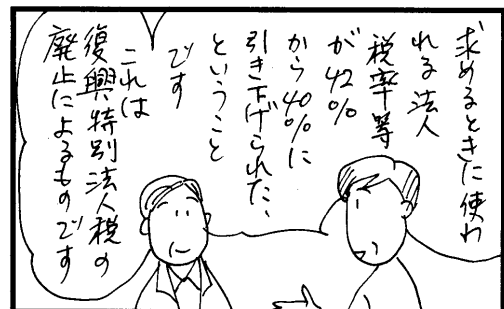 求めるときに使わ
れる法人
税率等
が42%
から40%に
引き下げられた、
ということ
です
これは
復興特別法人税の
廃止によるものです